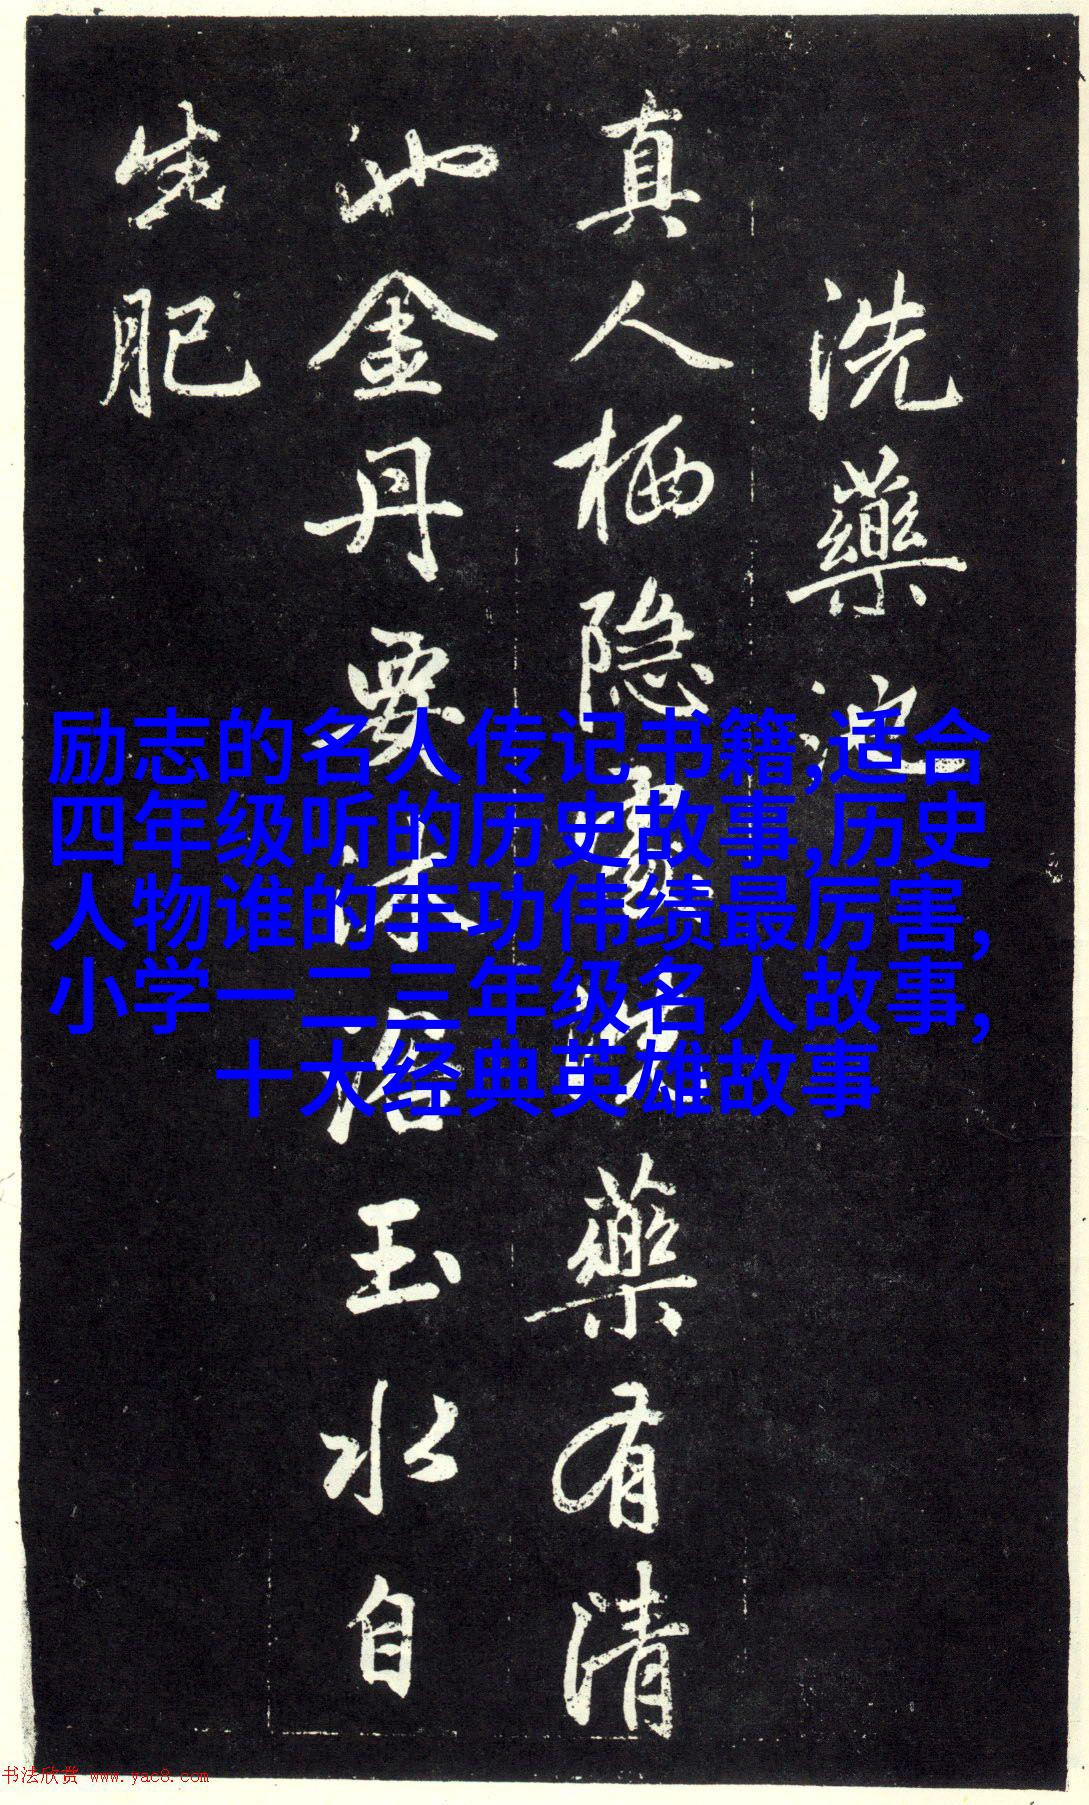 洗藥池
真人栖隐處洗藥有清
池金丹要沐浴玉水自
生肥
励志的名人传记书籍,适合
四年级听的历史故事,历史
人物谁的丰功伟绩最厉害,
小学一二三年级名人故事,
十大经典英雄故事
书法欣赏 www.yac8.com